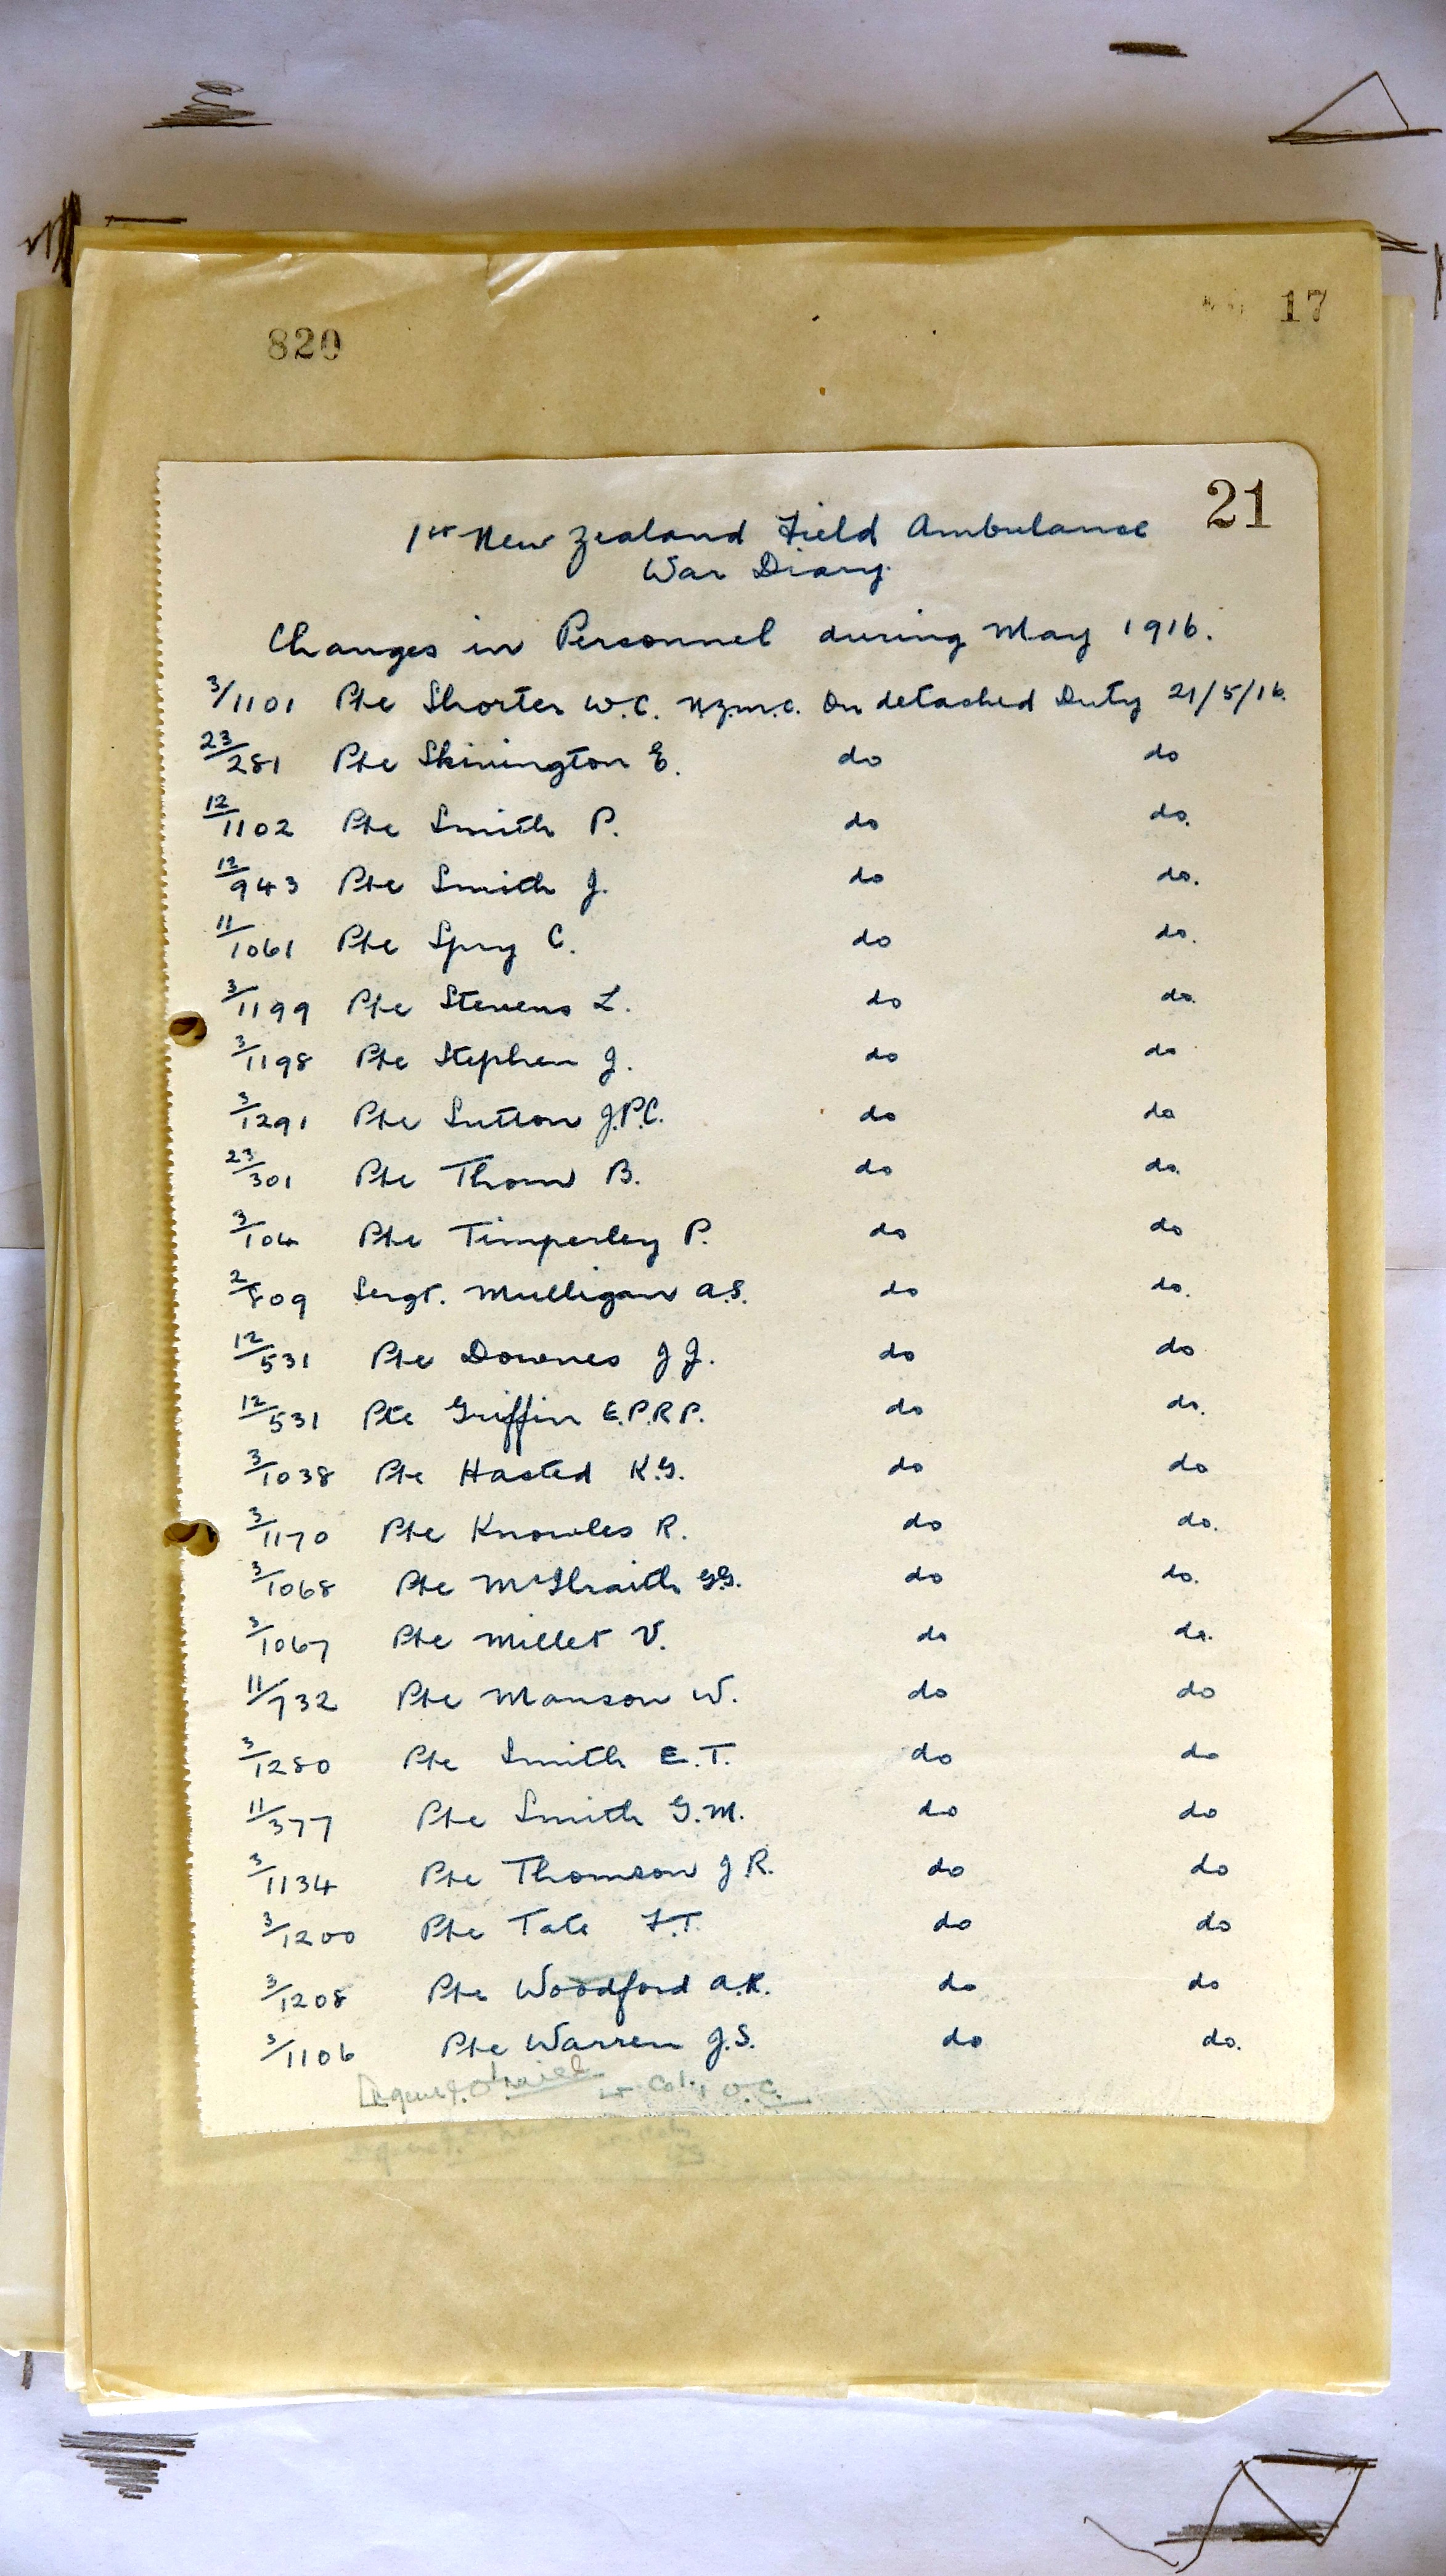 820
17
21
1st New Zealand Field Ambulance
War Diary.
Changes in Personnel during May 1916.
3/1101 Pte Shorter W.C. N.Z.M.C. On detached Duty 21/5/16.
23/281 Pte Skivington E. do do
12/1102 Pte Smith P. do do.
12/943 Pte Smith J. do do.
11/1061 Pte Spry C. do do.
3/1199 Pte Stevens L. do do.
3/1198 Pte Stephen J. do do
3/1291 Pte Sutton J.P.C. do do
23/301 Pte Thom B. do do.
3/104 Pte Timperley P. do do
2/809 Sergt. Mulligan A.S. do do.
12/531 Pte Downes J J. do do
12/531 Pte Griffin E.P.R.P. do do.
3/1038 Pte Hasted K.G. do do
3/1170 Pte Knowles R. do do.
3/1068 Pte McIlraith G.G. do do.
3/1067 Pte Millet V. do do.
11/732 Pte Manson W. do do
3/1280 Pte Smith E.T. do do
11/377 Pte Smith G.M. do do
3/1134 Pte Thomson J R. do do
3/1200 Pte Tate F.T. do do
3/1208 Pte Woodford A.K. do do
3/1106 Pte Warren J.S. do do.
Lt Col., O.C.